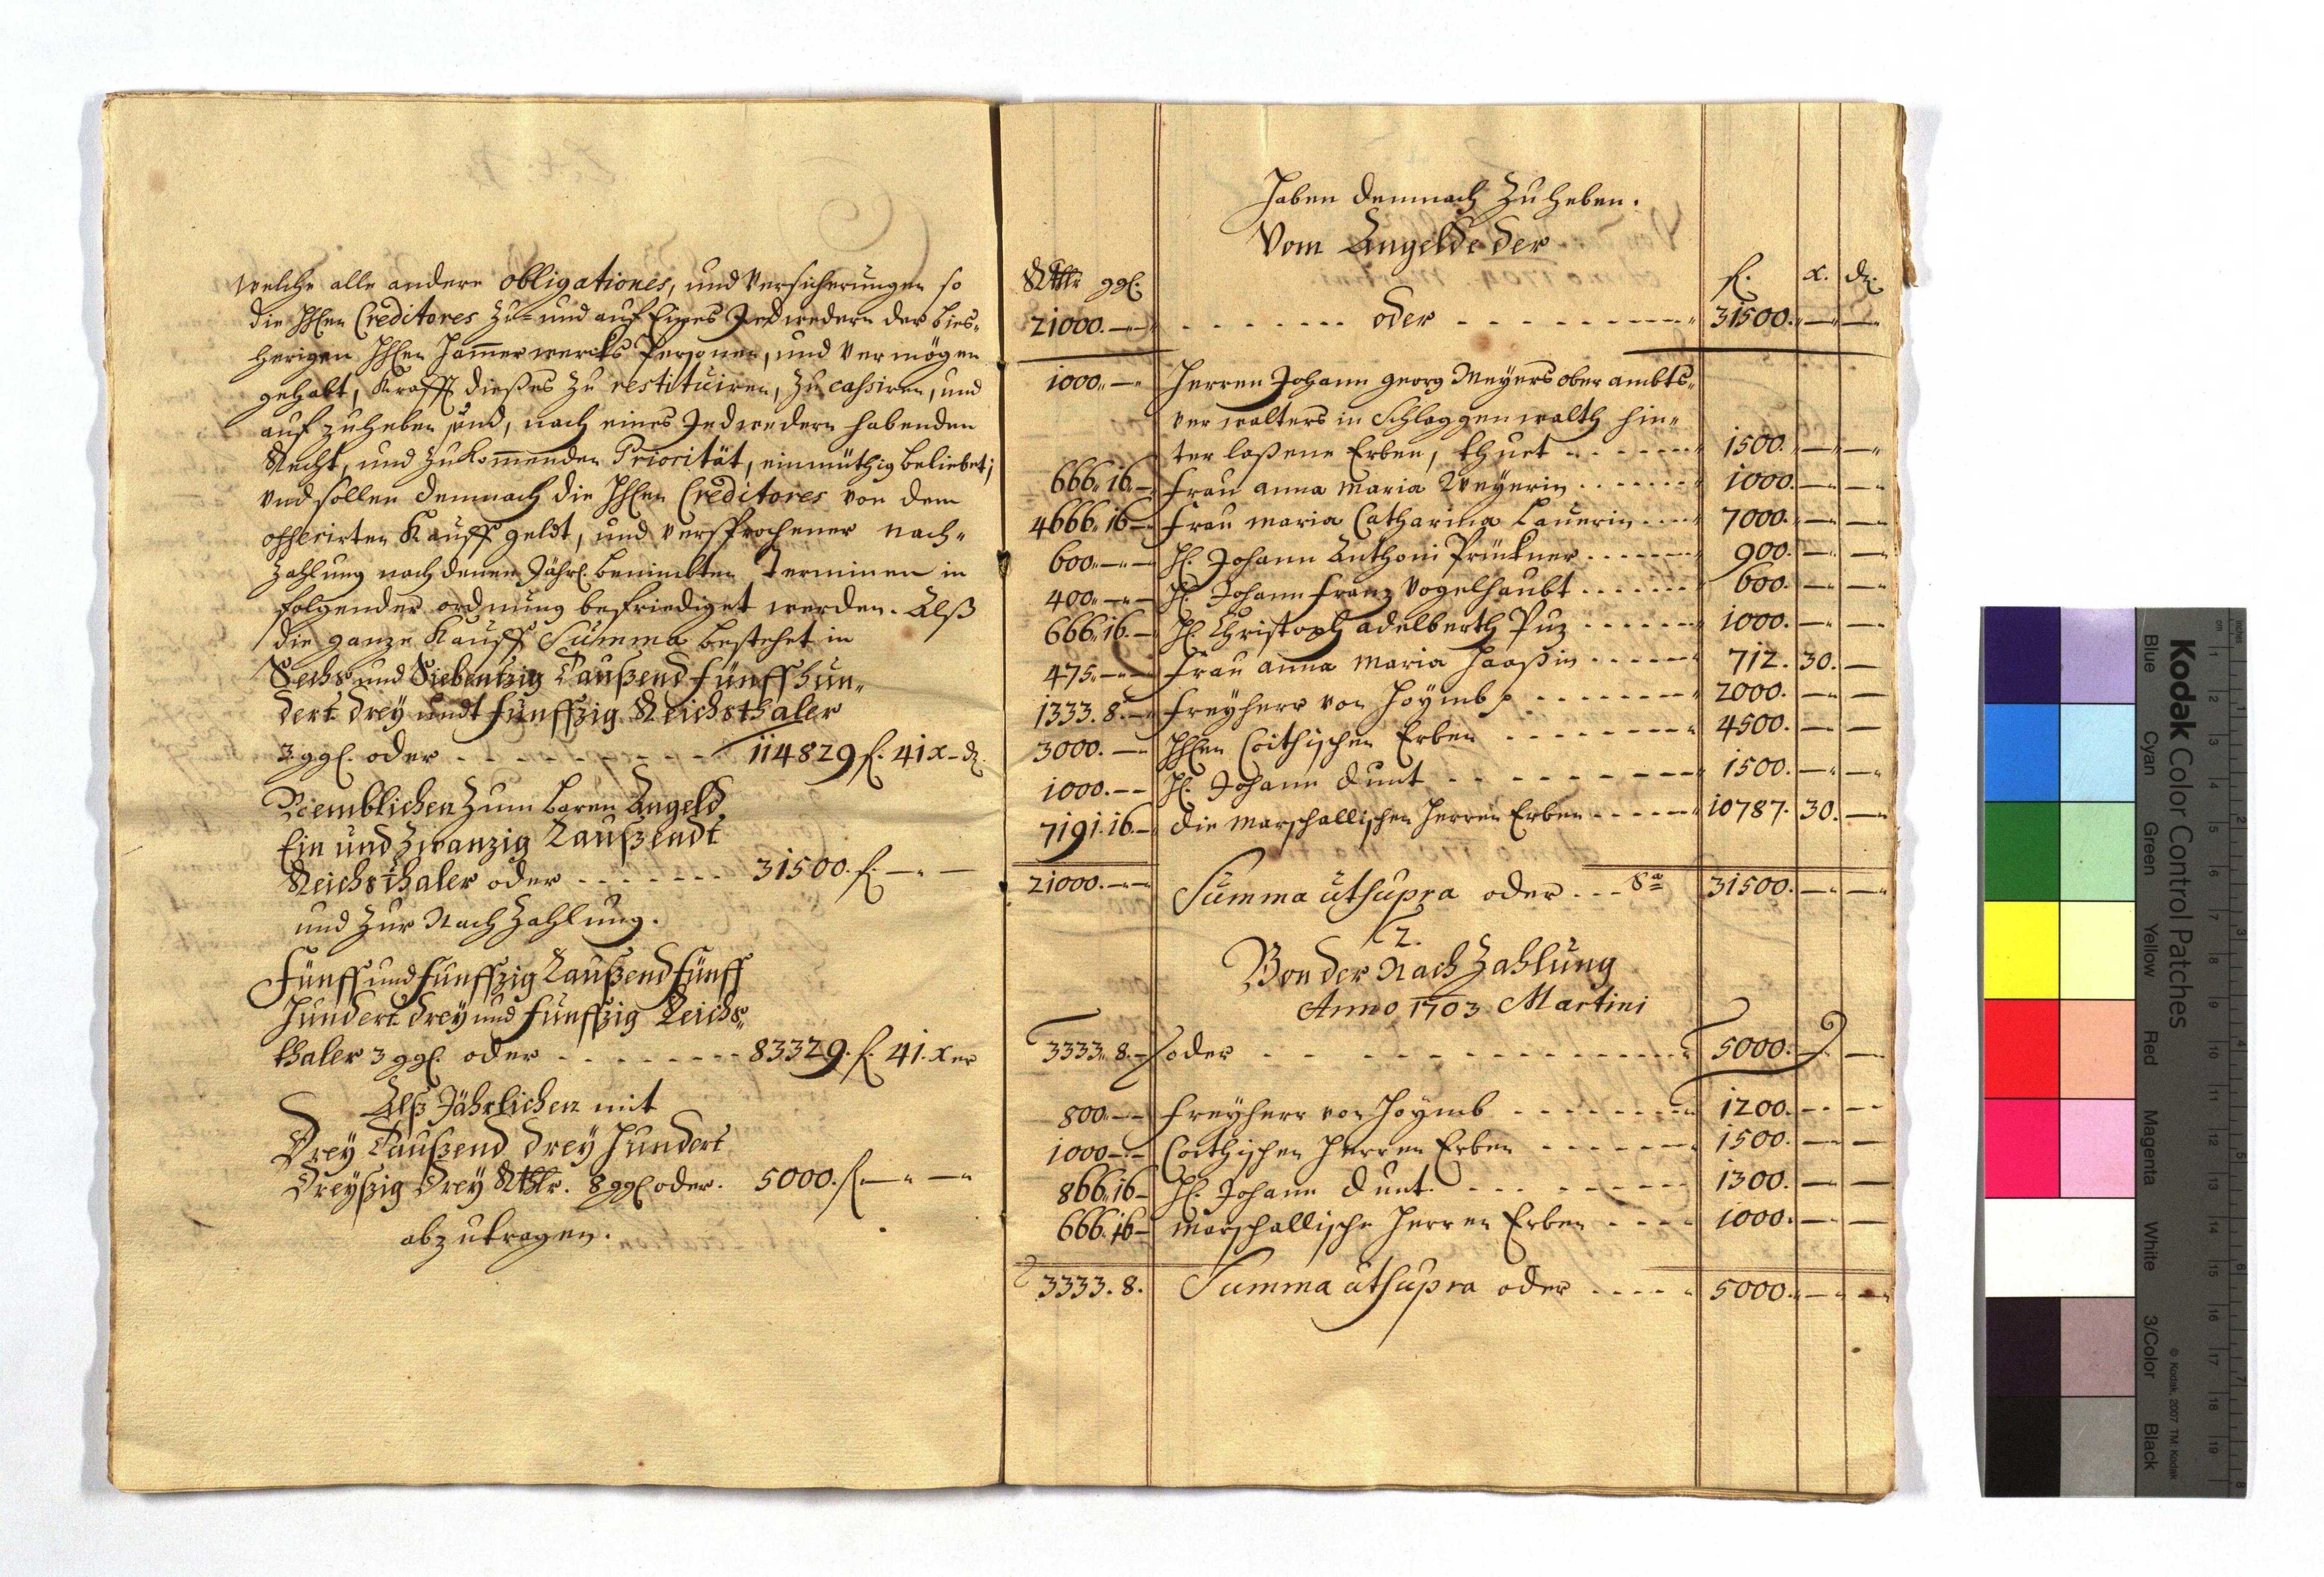 welche alle andere obligationes, und Versicherungen so
die HHen Creditores zu- und auf Eines Jedwedern der bies-
herigen HHen Hammerwercks Personen, und Vermögen
gehabt, Krafft dießes zu restituiren, zu cassiren, und
aufzuheben seynd, nach eines Jedwedern habenden
Recht, und zukommenden Priorität, einmüthig beliebet;
und sollen demnach die HHen Creditores von dem
offerirten Kauffgeldt, und versprochener nach-
zahlung nach denen Jährl. benimbten Terminen in
folgender ordnung befriediget werden. Alß
die ganze Kauff Summa bestehet in
Sechs und Siebentzig Taußend fünffhun-
dert drey undt fünffzig Reichsthaler
3 ggl. oder - - - - - - - - - 114829 f. 41 x - d.
Nemblichen zum baren Angeld
Ein und zwanzig Taußendt
Reichsthaler oder - - - - - - 31500. f. — " —
und zur Nachzahlung.
Fünff und fünffzig Taußend fünff
Hundert drey und fünffzig Reichs-
thaler 3 ggl. oder - - - - - - - - 83329. f. 41. xer
Alß Jährlichen mit
Drey Taußend drey Hundert
dreyßig drey Rthlr. 8 ggl oder. 5000. f. — " — "
abzutragen.
Haben demnach zu heben.
Vom Angelde der
Rthlr ggl. f. x. d.
21000. — " - - - - - - - oder - - - - - - - 31500. — " —
1000. " — " Herren Johann Georg Meyers ober ambts-
verwalters in Schlaggenwalth hin-
terlaßene Erben, thuet - - - - - 1500. " — " — "
666. 16. — Frau anna Maria Meyerin - - - - - 1000. — " —
4666. 16 — Frau Maria Catharina Lauerin - - - 7000. — " —
600. " — " — H. Johann Anthoni Prückner - - - - - 900. — " — "
400. " — " — H. Johann Franz Vogelhaubt - - - - - 600. — " —
666. 16. — H. Christoph adelberth Puz - - - - - 1000. — " —
475. " — " — Frau anna Maria Haaßin - - - - - 712. 30. —
1333. 8. — Freyherr von Hoymb - - - - - - 2000. — " —
3000. — " HHen Coithischen Erben - - - - - - 4500. — " —
1000. — — H. Johann Dunt - - - - - - - - 1500. — " — "
7191. 16. — die Marschallischen Herren Erben - - - - 10787. 30. — "
21000. — " — Summa ut supra oder - - - Sa 31500. — " — "
2.
Von der Nachzahlung
Anno 1703 Martini
3333. 8. — oder - - - - - - - - - - - - 5000. — " —
800. — — Freyherr von Hoymb - - - - - - 1200. — — —
1000 — " — Coithischen Herren Erben - - - - - 1500. — " —
866. 16 — H. Johann Dunt - - - - - - - - 1300. — " —
666. 16 — Marschallische Herren Erben - - - - 1000. — " —
3333. 8. Summa ut supra oder - - - - 5000. — " — "
Kodak Color Control Patches
Blue Cyan Green Yellow Red Magenta White 3/Color Black
© Kodak, 2007 TM: Kodak